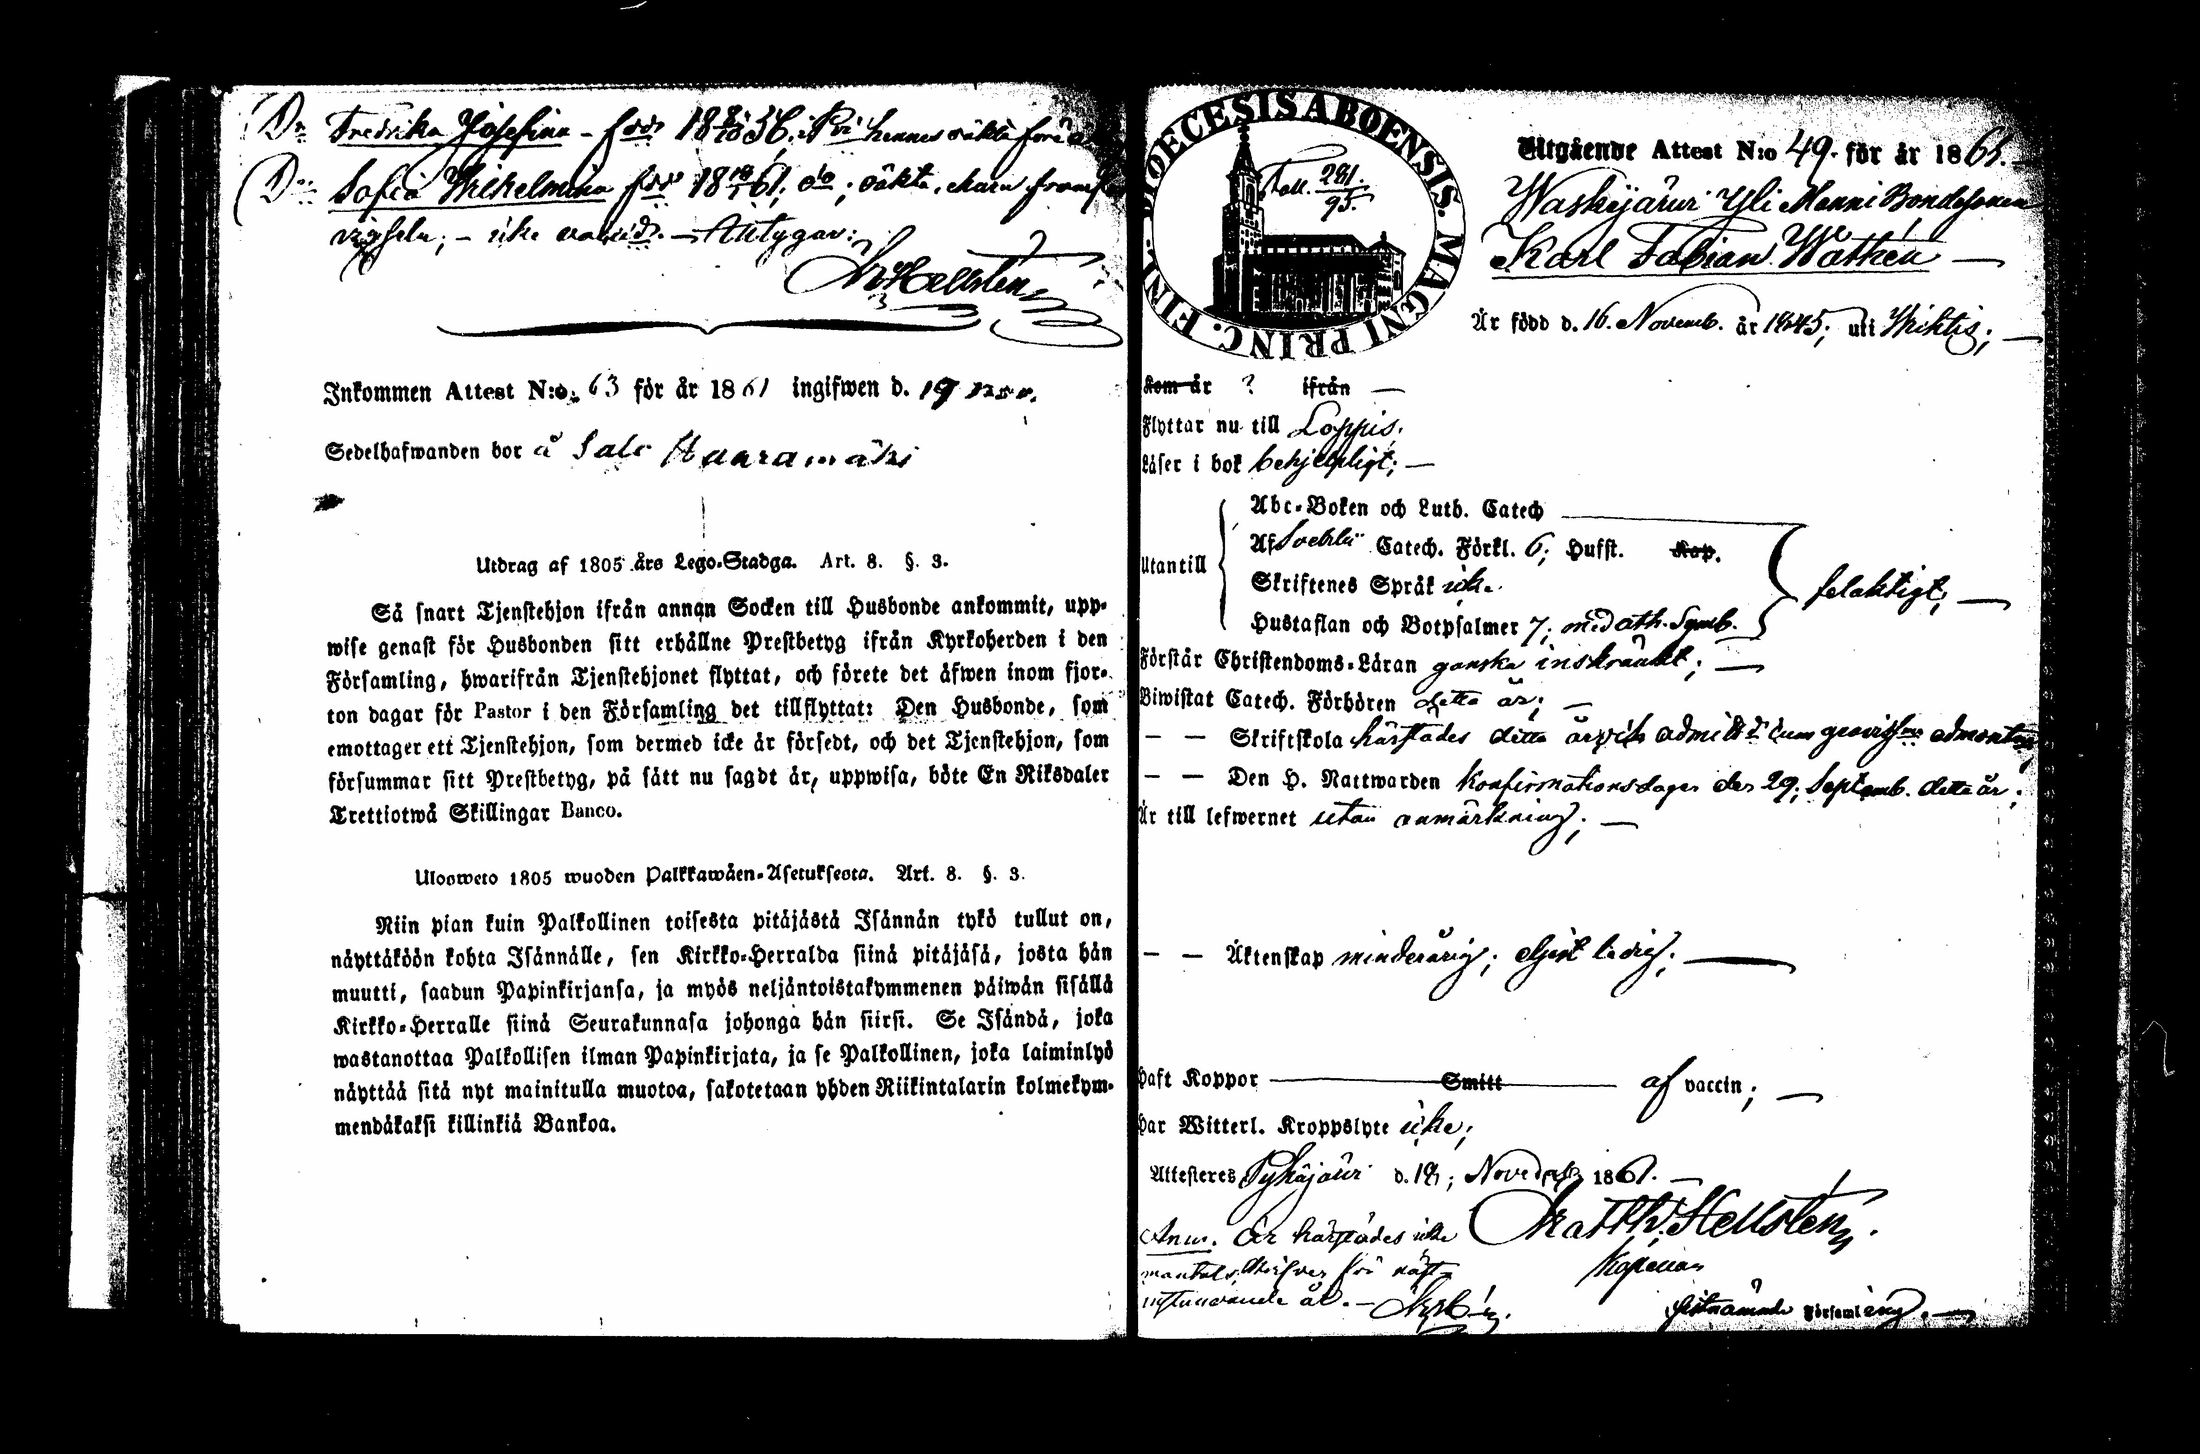 Dr Fredrika Josefina - född 18 8/10 56; P vi hennes äkta föräl
Dr Sofia Wilhelmina född 18 61; do; äkta,
vigseln; - icke Attygar:
Hellsten
Inkommen Attest N:o. 63 för år 1861 ingifwen d. 19 Nov.
Sedelhafwanden bor å Salo Haaramäki
Utdrag af 1805 års Lego-Stadga. Art. 8. §. 3.
Så snart Tjenstehjon ifrån annan Socken till Husbonde ankommit, upp-
wise genast för Husbonden sitt erhållne Prestbetyg ifrån Kyrkoherden i den
Församling, hwarifrån Tjenstehjonet flyttat, och förete det äfwen inom fjor-
ton dagar för Pastor i den Församling det tillflyttat: Den Husbonde, som
emottager ett Tjenstehjon, som dermed icke är försedt, och det Tjenstehjon, som
försummar sitt Prestbetyg, på sätt nu sagdt är, uppwisa, böte En Riksdaler
Trettiotwå Skillingar Banco.
Ulosweto 1805 wuoden Palkkawäen-Asetuksesta. Art. 8. §. 3.
Niin pian kuin Palkollinen toisesta pitäjästä Isännän tykö tullut on,
näyttäköön kohta Isännälle, sen Kirkko-Herralda siinä pitäjäsä, josta hän
muutti, saadun Papinkirjansa, ja myös neljäntoistakymmenen päiwän sisällä
Kirkko-Herralle siinä Seurakunnasa johonga hän siirsi. Se Isändä, joka
wastanottaa Palkollisen ilman Papinkirjata, ja se Palkollinen, joka laiminlyö
näyttää sitä nyt mainitulla muotoa, sakotetaan yhden Riikintalarin kolmekym-
mendäkaksi killinkiä Bankoa.
DIOECESIS ABOENSIS. MAGNI PRINC. FINL.
Fol. 281.
95.
Utgående Attest N:o 49. för år 1861.
Waskijärwi Yli Manni Bondesonen
Karl Fabian Wathén
Är född d. 16. Novemb. år 1845; uti Wichtis;
Kom år ? ifrån
Flyttar nu till Loppis.
Läser i bok behjelpligt;
Utantill
Abc-Boken och Luth. Catech
Af Catech. Förkl. 6; Husst. Kap.
Skriftenes Språk icke
Hustaflan och Botpsalmer 7; med ath. Symb.
felaktigt;
Förstår Christendoms-Läran ganska inskränkt;
Biwistat Catech. Förhören detta år;
— — Skriftskola härstädes detta år, och
— — Den H. Nattwarden Konfirmationsdagen den 29. Septemb. detta år;
Är till lefwernet utan anmärkning;
— — Äktenskap minderårig; ledig;
Haft Koppor Smitt af vaccin;
Har Witterl. Kroppslyte icke;
Attesteres Pyhäjärvi d. 18; 1861.
Matth. Hellstén
Kapellan
Anm. Är härstädes icke
mantals skrifven för näst
instundande år.
sistnämnde Församling.